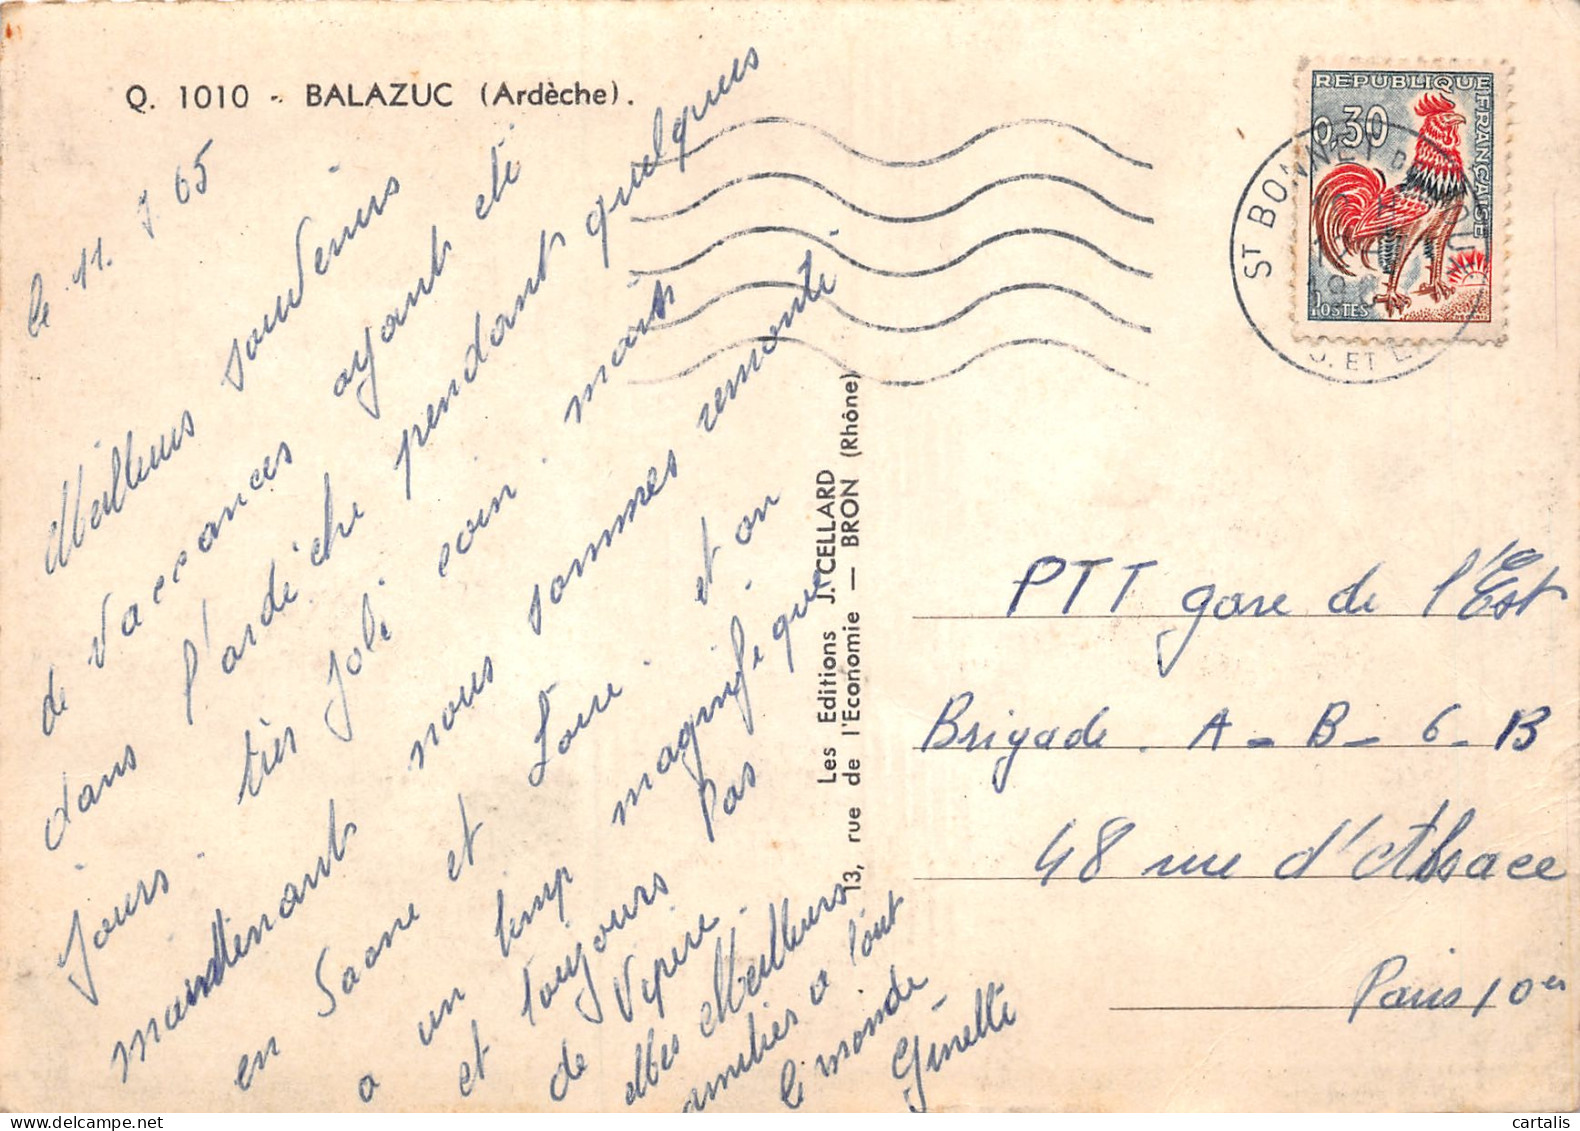 Q. 1010 - BALAZUC (Ardèche).
le 11. 7 65
Meilleurs souvenirs
de Vaccances ayant été
dans l'ardèche pendant quelques
jours. très joli coin mais
maintenant nous sommes remonté
en Saone et Loire et on
a un temp magnifique
et toujours pas
de Vipere.
Mes Meilleurs
amitiés a tout
le monde
Ginette
Les Editions J. CELLARD
13, rue de l'Economie — BRON (Rhône)
REPUBLIQUE FRANÇAISE
0,30
POSTES
ST BONNET DE
S. ET L.
PTT gare de l'Est
Brigade. A - B - 6 - B
48 rue d'Alsace
Paris 10er
cartalis